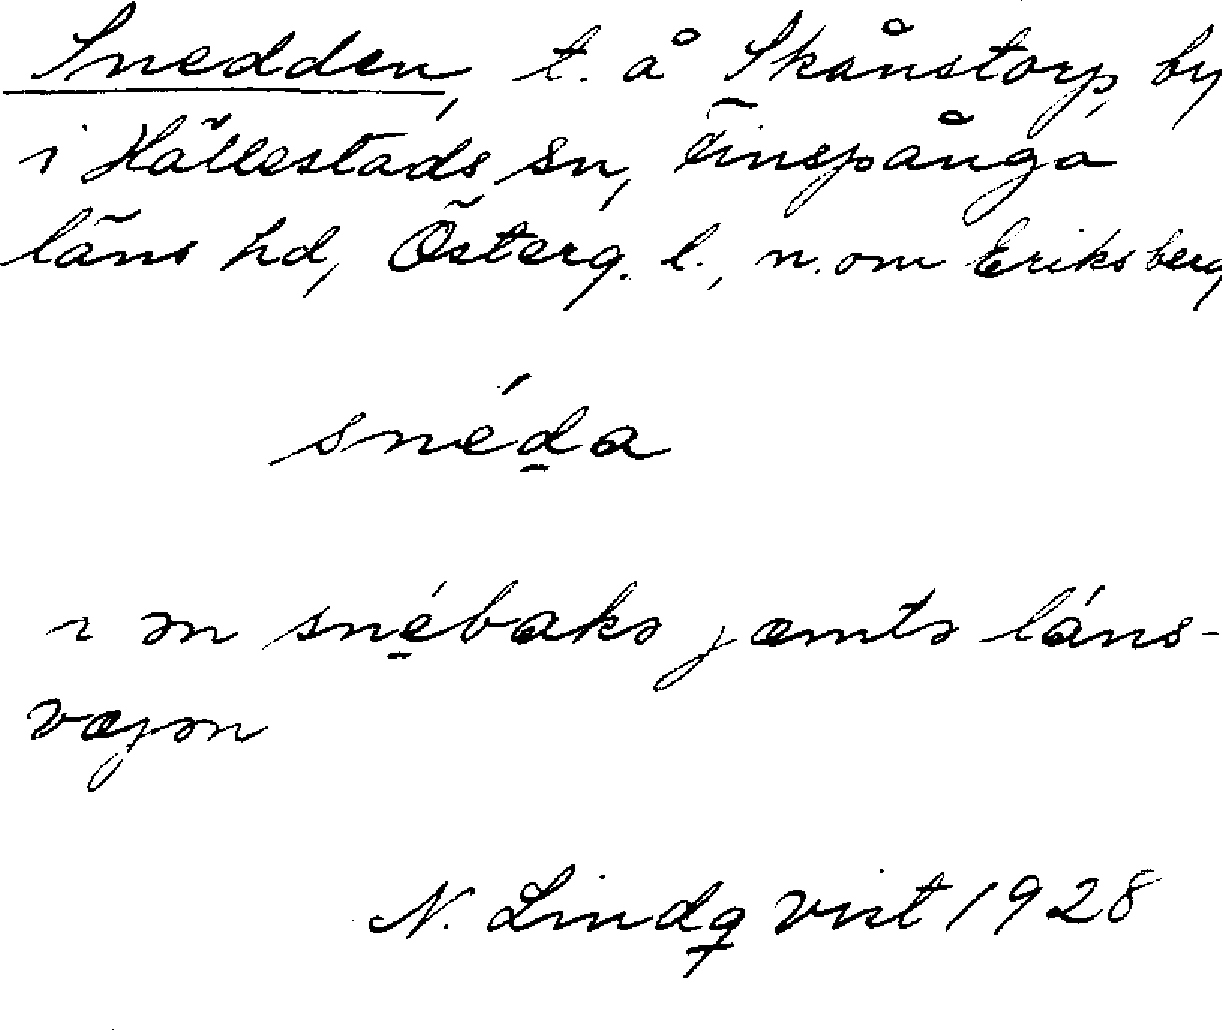 Snedden, t. å Skånstorp, by
i Hällestads sn, Finspånga
läns hd, Österg. l., n. om Eriksberg
snéd̲a
ı ən sné̲bakə jæmtə láns-
væjən
N. Lindqvist 1928